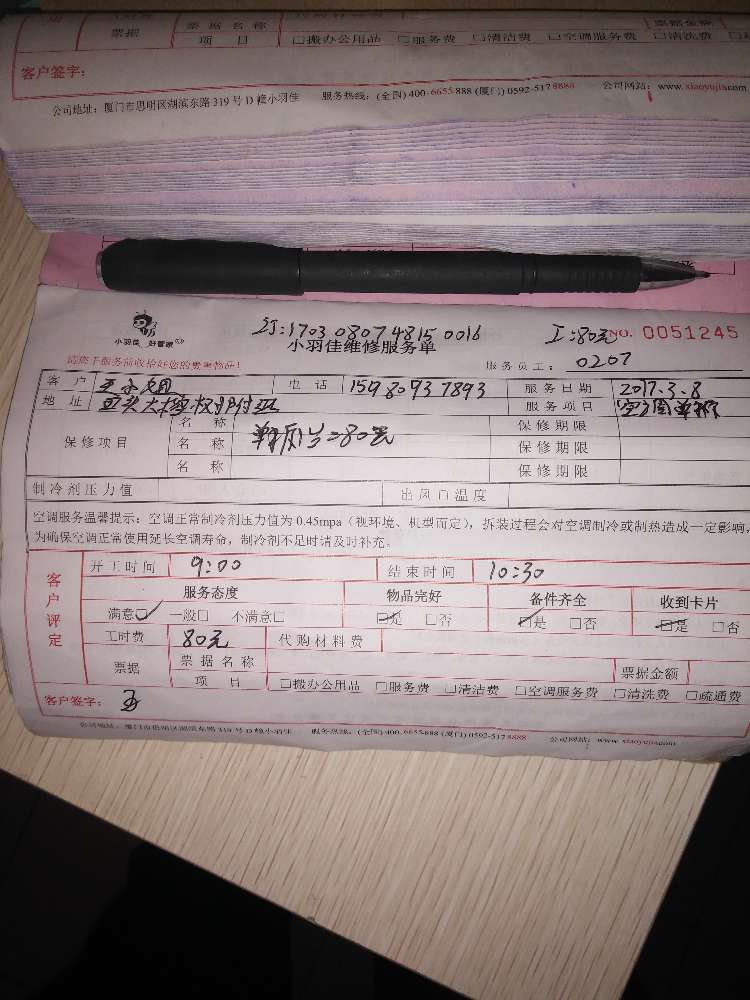 票据
票据名称
票据金额
项目 □搬办公用品 □服务费 □清洁费 □空调服务费 □清洗费
客户签字:
公司地址:厦门市思明区湖滨东路319号D幢小羽佳 服务热线:(全国)400-6655-888 (厦门)0592-517 8888 公司网站:www.xiaoyujia.com
小羽佳 好管家
订:1703 0807 4815 0016
工:80元 NO. 0051245
小羽佳维修服务单
请您于服务前收拾好您的贵重物品!
服务员工: 0207
客户 电话 15980937893 服务日期 2017.3.8
地址 服务项目
保修项目 名称 保修期限
名称 =80元 保修期限
名称 保修期限
制冷剂压力值 出风口温度
空调服务温馨提示:空调正常制冷剂压力值为0.45mpa(视环境、机型而定),拆装过程会对空调制冷或制热造成一定影响,
为确保空调正常使用延长空调寿命,制冷剂不足时请及时补充。
客户评定
开工时间 9:00 结束时间 10:30
服务态度 物品完好 备件齐全 收到卡片
满意☑ 一般□ 不满意□ ☑是 □否 ☑是 □否 ☑是 □否
工时费 80元 代购材料费
票据 票据名称 票据金额
项目 □搬办公用品 □服务费 □清洁费 □空调服务费 □清洗费 □疏通费
客户签字:
公司地址:厦门市思明区湖滨东路319号D幢小羽佳 服务热线:(全国)400-6655-888 (厦门)0592-517 8888 公司网站:www.xiaoyujia.com